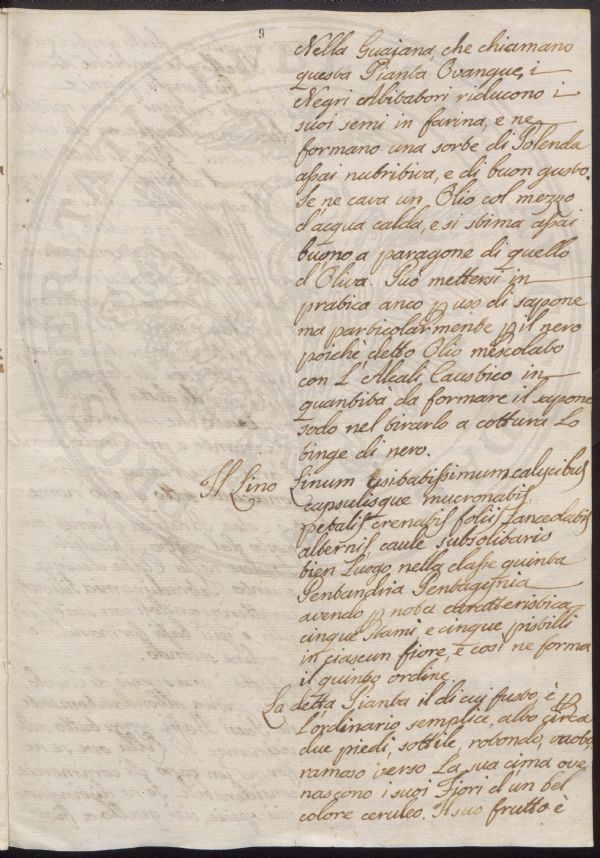 9
Nella Guajana, che chiamano
questa Pianta Ovangue, i
Negri Abitatori riducono i
suoi semi in farina, e ne
formano una sorte di Polenda
assai nutritiva, e di buon gusto.
Se ne cava un Olio col mezzo
d'acqua calda, e si stima assai
buono a paragone di quello
d'Oliva. Può mettersi in
pratica anco p uso di sapone
ma particolarmente p il nero
poichè detto Olio mescolato
con L'Alcali Caustico in
quantità da formare il sapone
sodo nel tirarlo a cottura Lo
tinge di nero.
Il Lino Linum usitatissimum calycibus
capsulisque mucronatis,
petalis crenatis foliis Lanceolatis
alternis, caule subsolitario
tien Luogo nella classe quinta
Pentandria Pentagynia
avendo p nota caratteristica
cinque Stami, e cinque pistilli
in ciascun fiore, e così ne forma
il quinto ordine.
La detta Pianta il di cui fusto, è p
L'ordinario semplice, alto circa
due piedi, sottile, rotondo, vacto,
ramoso verso La sua cima ove
nascono i suoi Fiori d'un bel
colore ceruleo. Il suo frutto è